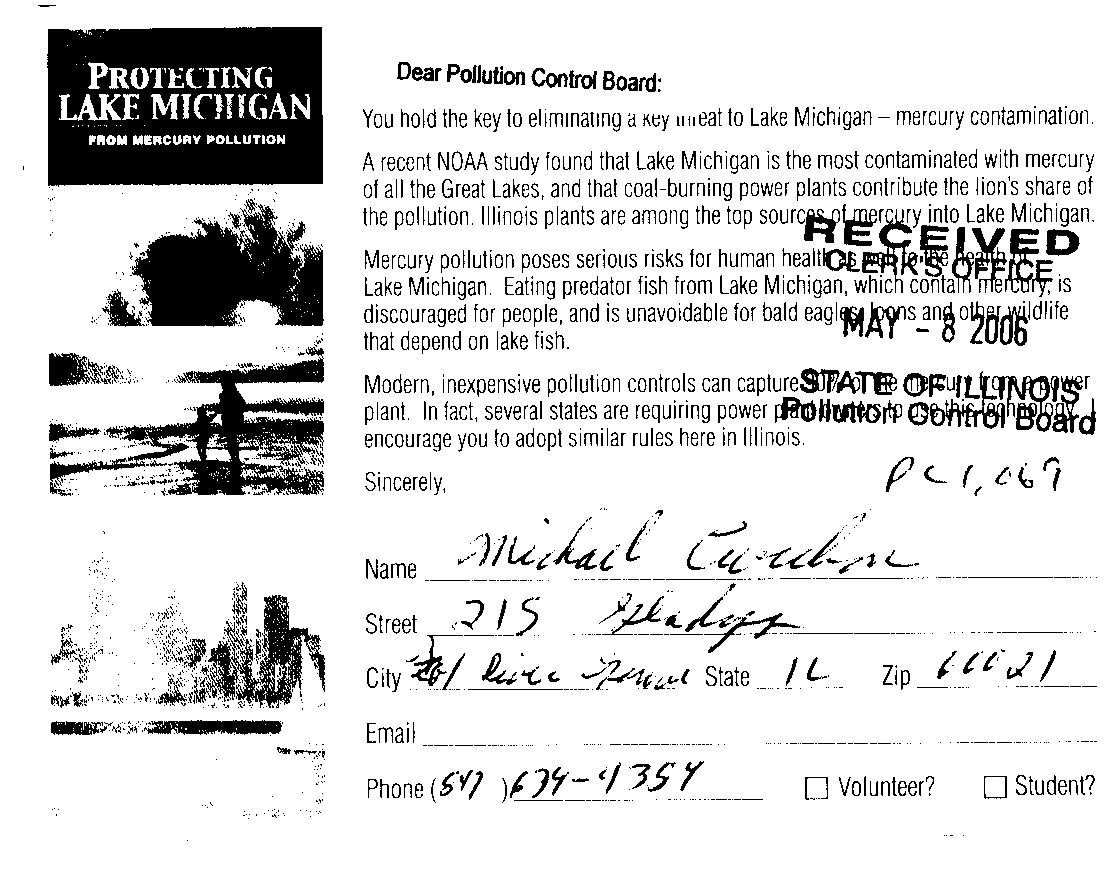 PROTECTING
LAKE MICHIGAN
FROM MERCURY POLLUTION
Dear Pollution Control Board:
You hold the key to eliminating a key threat to Lake Michigan – mercury contamination.
A recent NOAA study found that Lake Michigan is the most contaminated with mercury
of all the Great Lakes, and that coal-burning power plants contribute the lion's share of
the pollution. Illinois plants are among the top sources of mercury into Lake Michigan.
RECEIVED
CLERK'S OFFICE
MAY - 8 2006
STATE OF ILLINOIS
Pollution Control Board
Mercury pollution poses serious risks for human health as well to the health of
Lake Michigan. Eating predator fish from Lake Michigan, which contain mercury, is
discouraged for people, and is unavoidable for bald eagles, loons and other wildlife
that depend on lake fish.
Modern, inexpensive pollution controls can capture 90% of the mercury from a power
plant. In fact, several states are requiring power plant owners to use this technology. I
encourage you to adopt similar rules here in Illinois.
Sincerely,
PC 1,069
Name Michael
Street 215 Gladys
City River State IL Zip
Email
Phone ( ) 634-4354
Volunteer? Student?